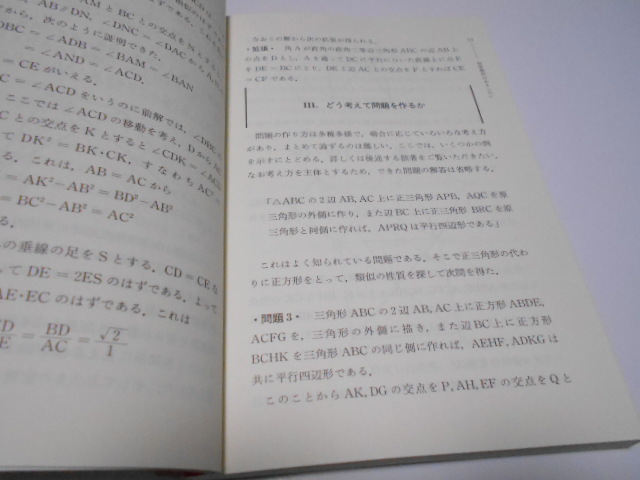 AM と BC との交点を N とする
から, 次のように証明できた.
AB∥DN, ∠DNC=∠DAC から
DBC=∠ADB=∠BAM=∠BAN
=∠AND=∠ACD.
=CE がいえる.
=∠ACD をいうのに前解では,
ここでは∠ACD の移動を考え, D から AC
C との交点を K とすると∠CDK=
て DK²=BK·CK, すなわち AC²=
る. これは, AB=AC から
=AK²−AB²=BD²−AB²
=BC²−AB²=AC²
る.
への垂線の足を S とする. CD=CE な
って DE=2ES のはずである. よって
AE·EC のはずである. これは
BD/AC = √2/1
なおこの解から次の拡張が得られる.
・拡張・ 角 A が直角の直角二等辺三角形 ABC の辺 AB 上
の点を D とし, A を通って DC に平行に引いた直線上に点 E
を DE=DC にとり, DE と辺 AC との交点を F とすれば CE
=CF である.
III. どう考えて問題を作るか
問題の作り方は多種多様で, 場合に応じていろいろな考え方
があり, まとめて論ずるのは難しい. ここでは, いくつかの例
を示すにとどめる. 詳しくは後述する拙著をご覧いただきたい.
なお考え方を主体とするため, できた問題の解答は省略する.
「△ABC の 2 辺 AB, AC 上に正三角形 APB, AQC を原
三角形の外側に作り, また辺 BC 上に正三角形 BRC を原
三角形と同側に作れば, APRQ は平行四辺形である」
これはよく知られている問題である. そこで正三角形の代わ
りに正方形をとって, 類似の性質を探して次問を得た.
・問題 3・ 三角形 ABC の 2 辺 AB, AC 上に正方形 ABDE,
ACFG を, 三角形の外側に描き, また辺 BC 上に正方形
BCHK を三角形 ABC の同じ側に作れば, AEHF, ADKG は
共に平行四辺形である.
このことから AK, DG の交点を P, AH, EF の交点を Q と